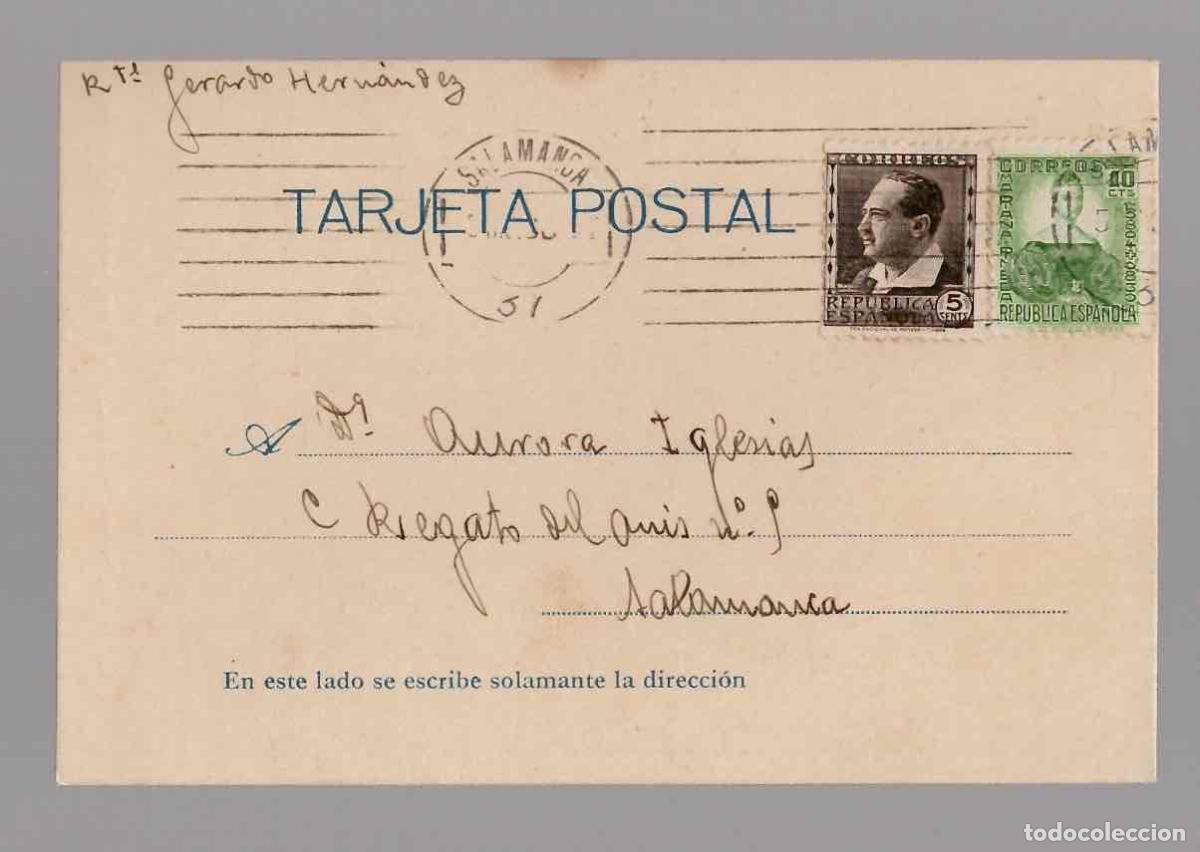 Rte Gerardo Hernández
SALAMANCA
TARJETA POSTAL
51
CORREOS
REPÚBLICA
ESPAÑOLA
5
CENTS
CORREOS
10
CTS
MARIANA PINEDA
REPUBLICA ESPAÑOLA
A Dª Aurora Iglesias
C Regato del Anis nº 9
Salamanca
En este lado se escribe solamante la dirección
todocoleccion